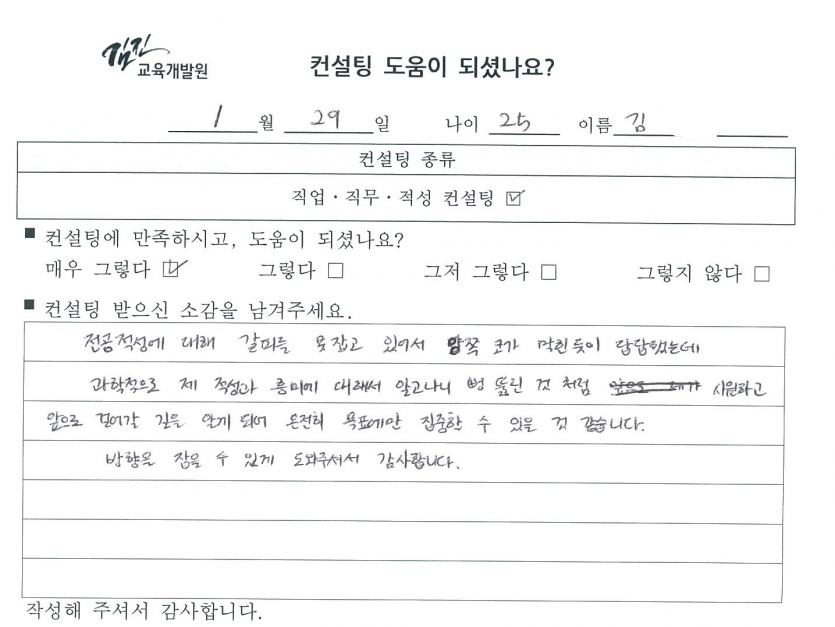 김진
교육개발원
컨설팅 도움이 되셨나요?
1월 29일 나이 25 이름 김
컨설팅 종류
직업 · 직무 · 적성 컨설팅 ☑
■ 컨설팅에 만족하시고, 도움이 되셨나요?
매우 그렇다 ☑ 그렇다 □ 그저 그렇다 □ 그렇지 않다 □
■ 컨설팅 받으신 소감을 남겨주세요.
전공적성에 대해 갈피를 못잡고 있어서 양쪽 코가 막힌듯이 답답했는데
과학적으로 제 적성과 흥미에 대해서 알고나니 뻥 뚫린 것 처럼 시원하고
앞으로 걸어갈 길을 알게 되어 온전히 목표에만 집중할 수 있을 것 같습니다.
방향을 잡을 수 있게 도와주셔서 감사합니다.
작성해 주셔서 감사합니다.